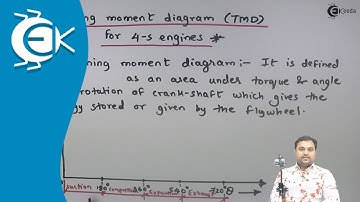 ing moment diagram (TMD)
for 4-s engines *
ning moment diagram:- It is defined
as an area under torque & angle
rotation of crank-shaft which gives the
gy stored or given by the flywheel.
Suction 180° compression 360° Expansion 540° Exhaust 720° θ
Ekeeda